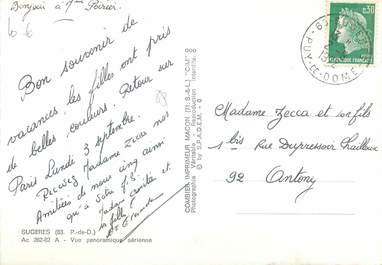 Bonjour à Mme Poirier
Bon souvenir de
vacances, les filles ont pris
de belles couleurs. Retour sur
Paris Lundi 3 septembre.
Recevez Madame Zecca nos
Amitiés de nous cinq ainsi
qu'à votre fils
Madame
et
sa fille
SUGERES (63. P.-de-D.)
Ac 262-82 A - Vue panoramique aérienne
COMBIER IMPRIMEUR MACON (71.-S.-&-L.) "CIM"
Photographie Véritable - Reproduction interdite.
© by S.P.A.D.E.M. - 0
0,30
REPUBLIQUE FRANÇAISE
63
PUY-DE-DOME
Madame Zecca et son fils
1 bis Rue Dupressoir Chailloux
92 Antony